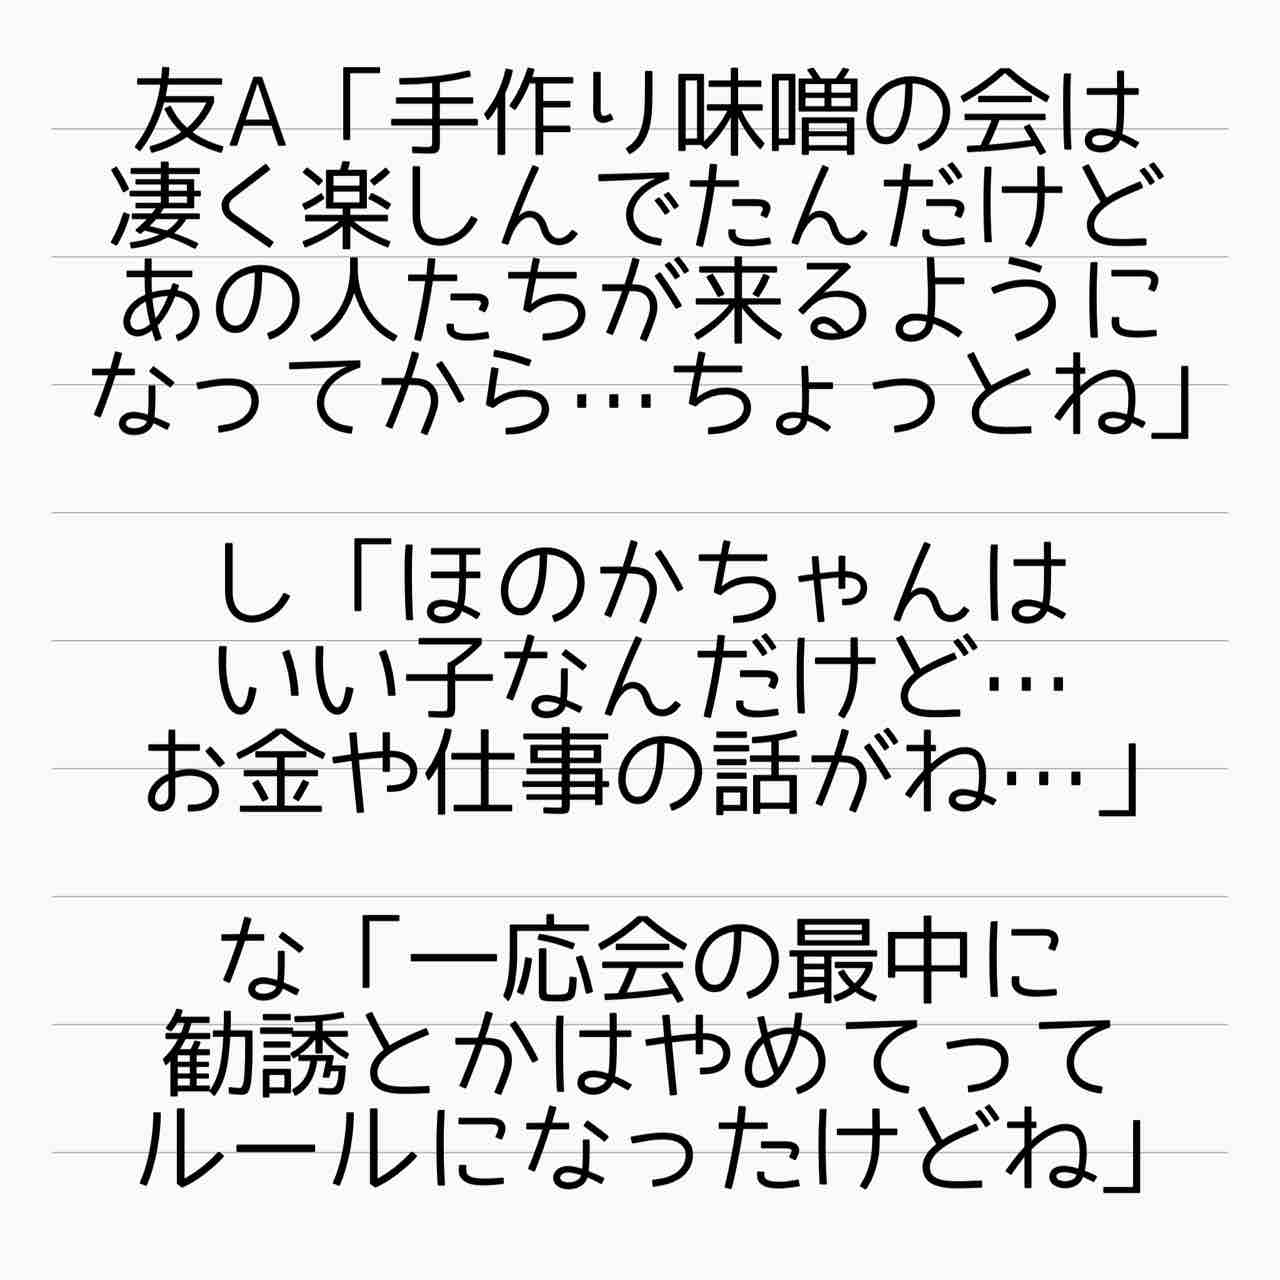 友A「手作り味噌の会は
凄く楽しんでたんだけど
あの人たちが来るように
なってから…ちょっとね」
し「ほのかちゃんは
いい子なんだけど…
お金や仕事の話がね…」
な「一応会の最中に
勧誘とかはやめてって
ルールになったけどね」